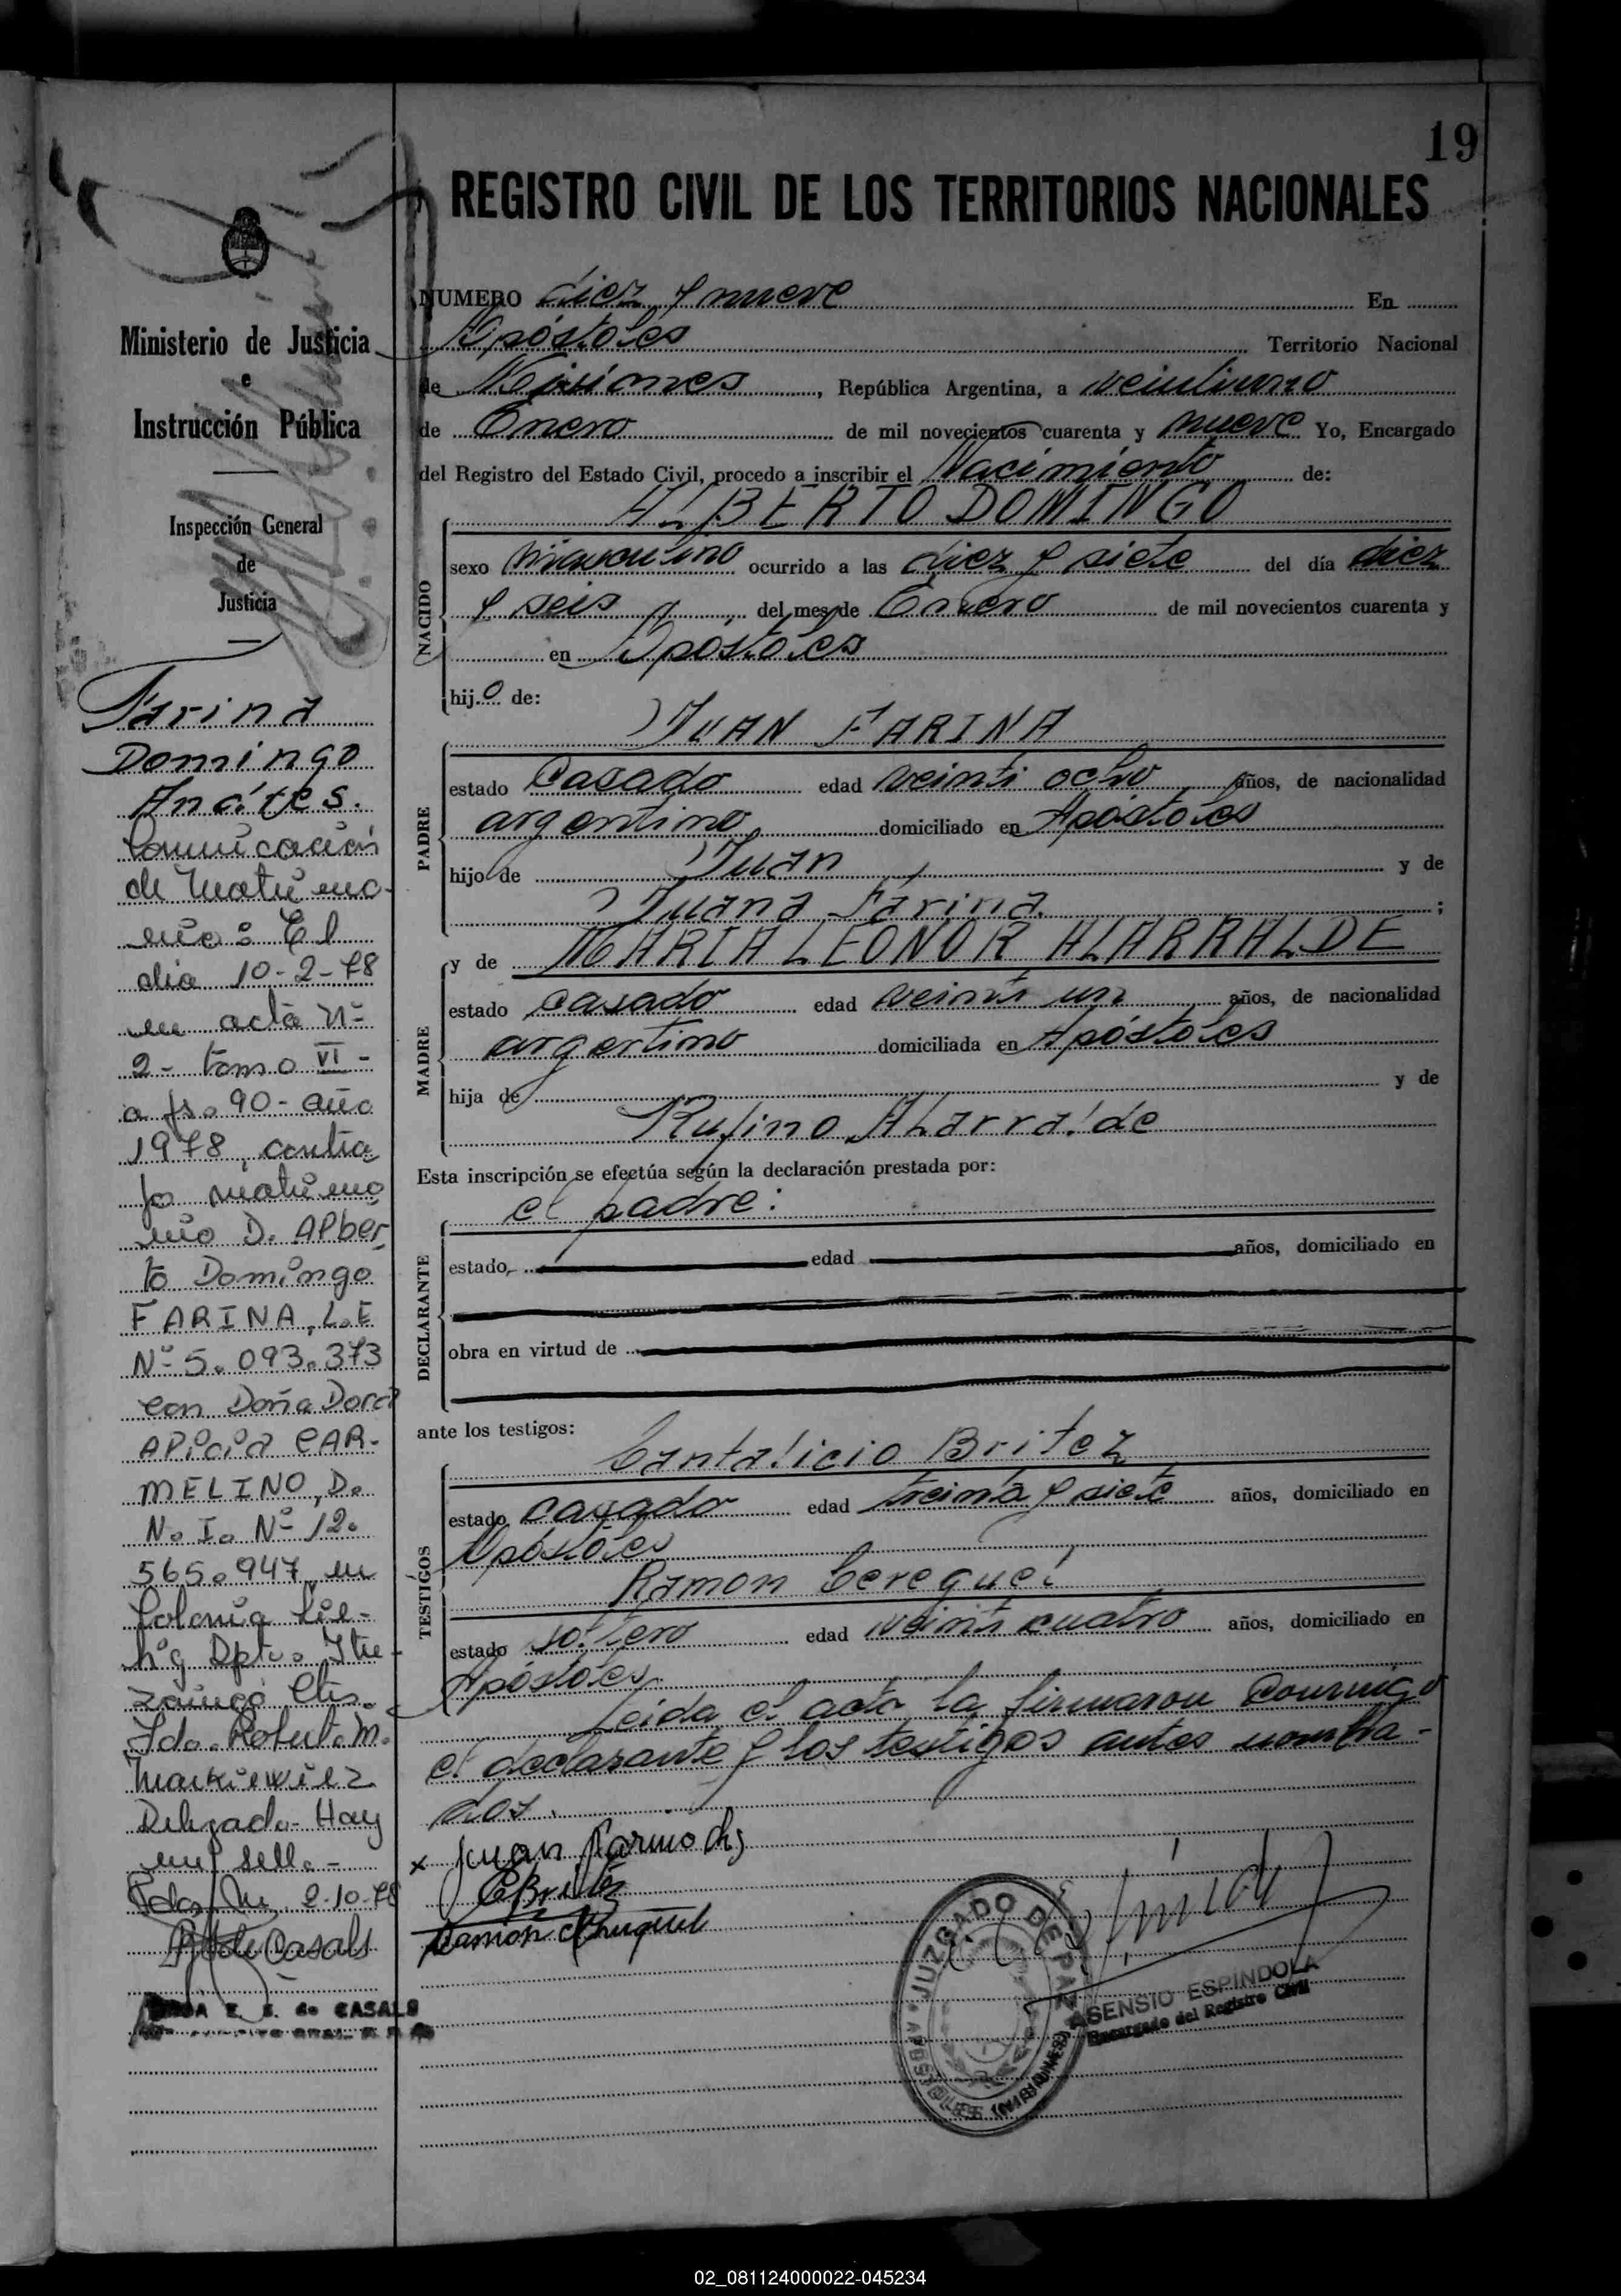 19
REGISTRO CIVIL DE LOS TERRITORIOS NACIONALES
Ministerio de Justicia
e
Instrucción Pública
Inspección General
de
Justicia
Farina
Domingo
Comunicación
de Matrimo-
nio: El
dia 10-2-78
en acta Nº
2- tomo VI-
a fs. 90- año
1978, contra
jo matrimo
nio D. Alber
to Domingo
FARINA, L.E
Nº 5.093.373
con Doña Dora
Alicia CAR-
MELINO, D.
N.I. Nº 12.
565.947 en
Colonia Lie-
big Dpto. Itu-
zaingó Ctes.
Fdo. Robert. M.
Markiewicz
Delgado- Hay
un sello.-
2-10-78
de Casals
E. de CASALS
NUMERO diez y nueve En
Apóstoles Territorio Nacional
de Misiones, República Argentina, a veintiuno
de Enero de mil novecientos cuarenta y nueve Yo, Encargado
del Registro del Estado Civil, procedo a inscribir el Nacimiento de:
ALBERTO DOMINGO
NACIDO
sexo masculino ocurrido a las diez y siete del día diez
y seis, del mes de Enero de mil novecientos cuarenta y
en Apóstoles
hijo de:
JUAN FARINA
PADRE
estado Casado edad veinti ocho años, de nacionalidad
argentino domiciliado en Apóstoles
hijo de Juan y de
Juana Farina;
y de MARIA LEONOR ALARRALDE
MADRE
estado casado edad veinti un años, de nacionalidad
argentino domiciliada en Apóstoles
hija de y de
Rufino Alarralde
Esta inscripción se efectúa según la declaración prestada por:
el padre:
DECLARANTE
estado, edad años, domiciliado en
obra en virtud de
ante los testigos:
Cantalicio Britez
TESTIGOS
estado casado edad treinta y siete años, domiciliado en
Apóstoles
Ramon
estado soltero edad veinti cuatro años, domiciliado en
Apóstoles
Leida el acta la firmaron conmigo
el declarante y los testigos antes nombra-
dos.
x Juan
CBritez
Ramon
JUZGADO DE PAZ
APOSTOLES (MISIONES)
ASENSIO ESPINDOLA
Encargado del Registro Civil
02_081124000022-045234